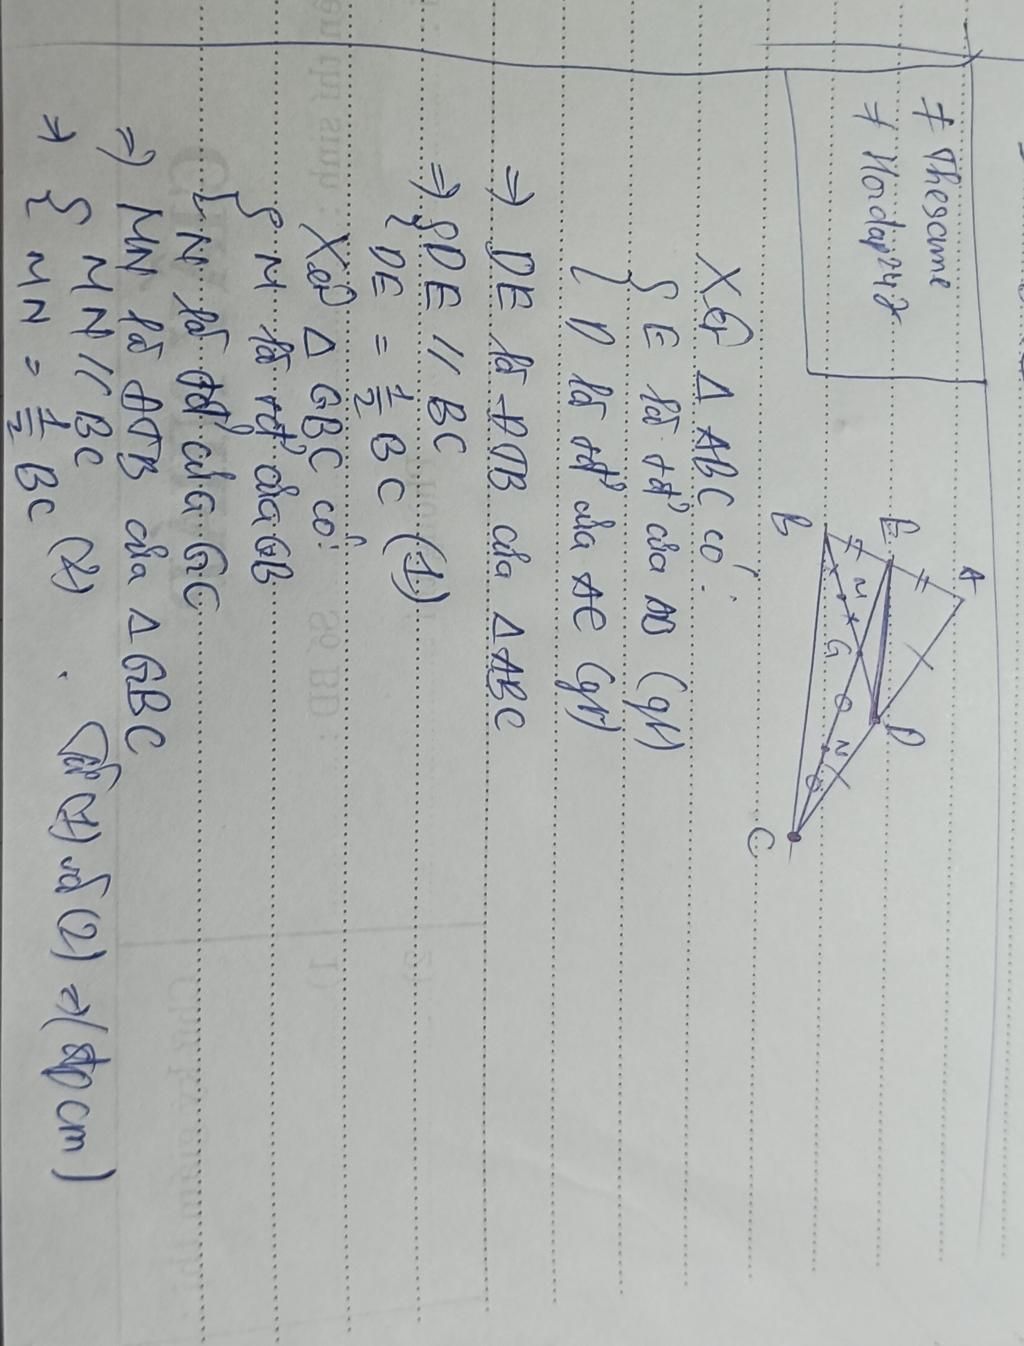 ≠ Thesame
≠ Hoidap247
A
E
D
B
M
G
N
C
Xét Δ ABC có:
{ E là tđ của AB (gt)
{ D là tđ của AC (gt)
⇒ DE là ĐTB của Δ ABC
⇒ { DE // BC
DE = 1/2 BC (1)
Xét Δ GBC có:
{ M là tđ của GB
{ N là tđ của GC
⇒ MN là ĐTB của Δ GBC
⇒ { MN // BC
MN = 1/2 BC (2)
Từ (1) và (2) ⇒ (đpcm)